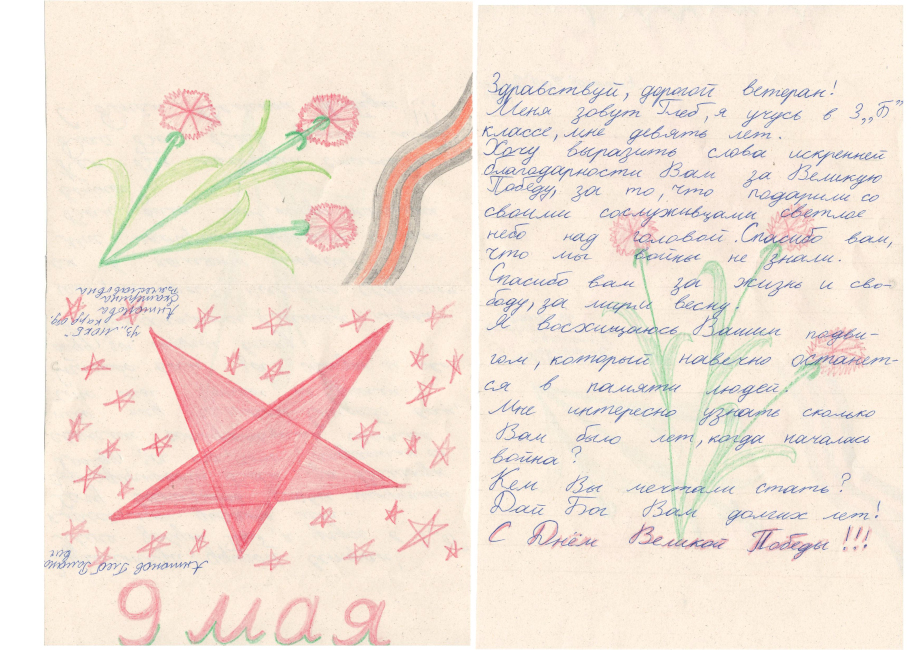 Антонова
Екатерина
Вячеславовна
Антонов Глеб Романо
вич
9 мая
Здравствуй, дорогой ветеран!
Меня зовут Глеб, я учусь в 3 „Б"
классе, мне девять лет.
Хочу выразить слова искренней
благодарности Вам за Великую
Победу, за то, что подарили со
своими сослуживцами светлое
небо над головой. Спасибо вам,
что мы войны не знали.
Спасибо вам за жизнь и сво-
боду, за мирн весну.
Я восхищаюсь Вашим подви-
гом, который навечно останет-
ся в памяти людей.
Мне интересно узнать сколько
Вам было лет, когда началась
война?
Кем Вы мечтали стать?
Дай Бог Вам долгих лет!
С Днём Великой Победы!!!